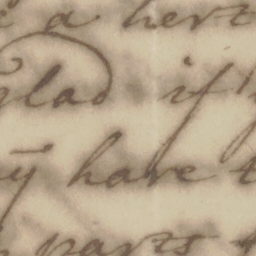 a hert
glad if
have t
parts